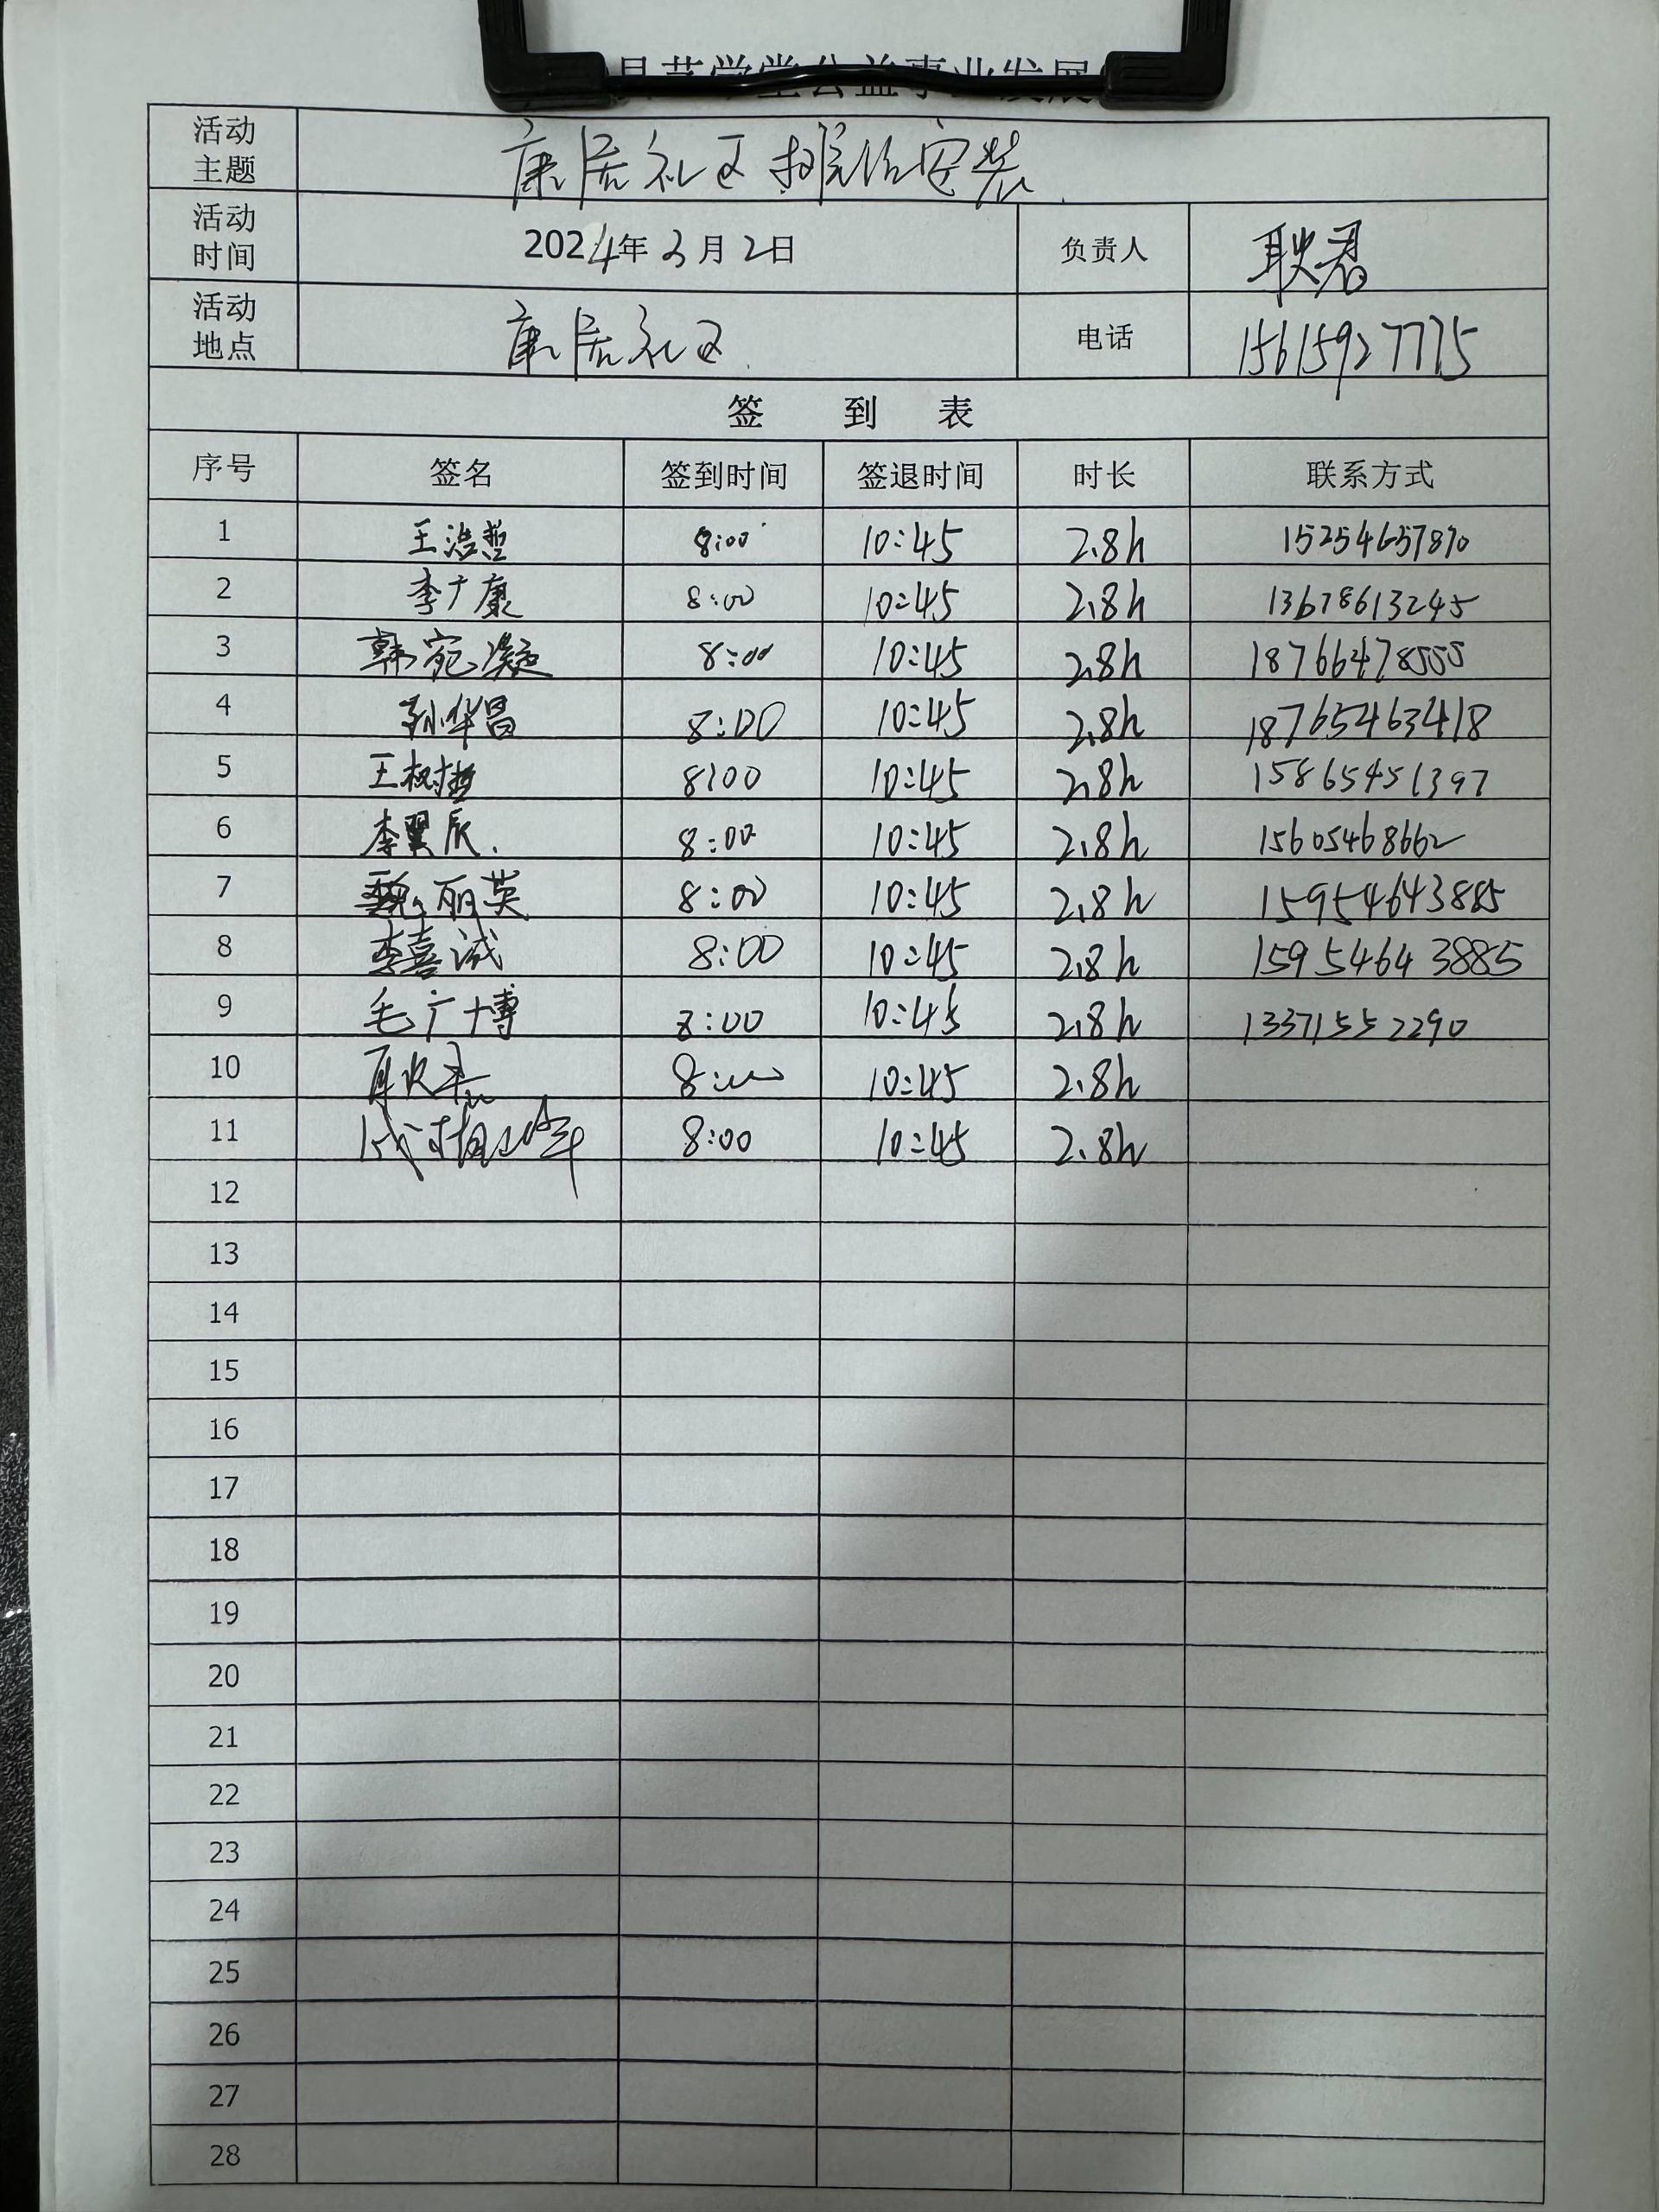 学堂公益事业发展
活动主题 康居社区摊位安装
活动时间 2024年3月2日 负责人 耿君
活动地点 康居社区 电话 15615927775
签 到 表
序号 签名 签到时间 签退时间 时长 联系方式
1 王浩哲 8:00 10:45 2.8h 15254657870
2 李广康 8:00 10:45 2.8h 13678613245
3 韩宛凝 8:00 10:45 2.8h 18766478555
4 孙华昌 8:00 10:45 2.8h 18765463418
5 王树哲 8:00 10:45 2.8h 15865451397
6 李翼辰. 8:00 10:45 2.8h 15605468662
7 魏丽英 8:00 10:45 2.8h 15954643885
8 李喜诚 8:00 10:45 2.8h 15954643885
9 毛广博 8:00 10:45 2.8h 13371552290
10 8:00 10:45 2.8h
11 8:00 10:45 2.8h
12
13
14
15
16
17
18
19
20
21
22
23
24
25
26
27
28